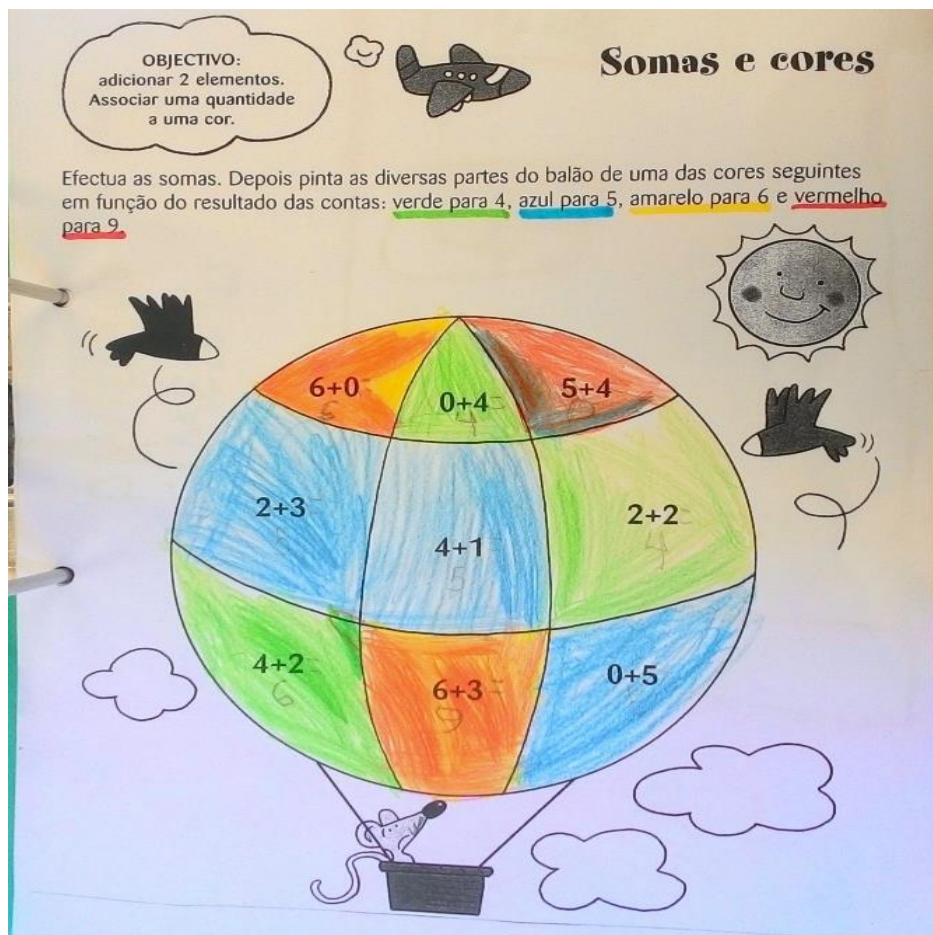 OBJECTIVO:
adicionar 2 elementos.
Associar uma quantidade
a uma cor.
Somas e cores
Efectua as somas. Depois pinta as diversas partes do balão de uma das cores seguintes
em função do resultado das contas: verde para 4, azul para 5, amarelo para 6 e vermelho
para 9.
6+0=
6
0+4=
4
5+4
2+3=
2+2
4
4+1
5
4+2
6
6+3=
9
0+5